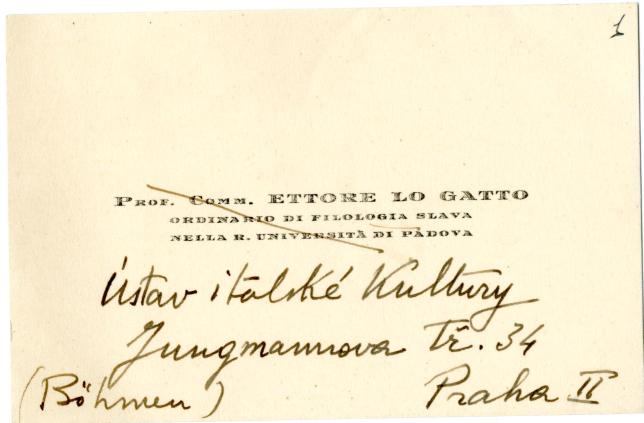 1
Prof. Comm. ETTORE LO GATTO
ORDINARIO DI FILOLOGIA SLAVA
NELLA R. UNIVERSITÀ DI PADOVA
Ústav italské Kultury
Jungmannova Tř. 34
(Böhmen) Praha II